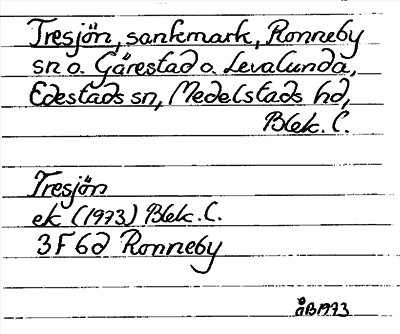 Tresjön, sankmark, Ronneby
sn o. Gärestad o. Levalunda,
Edestads sn, Medelstads hd,
Blek. C.
Tresjön
ek (1973) Blek. C.
3F6d Ronneby
ÅB1973